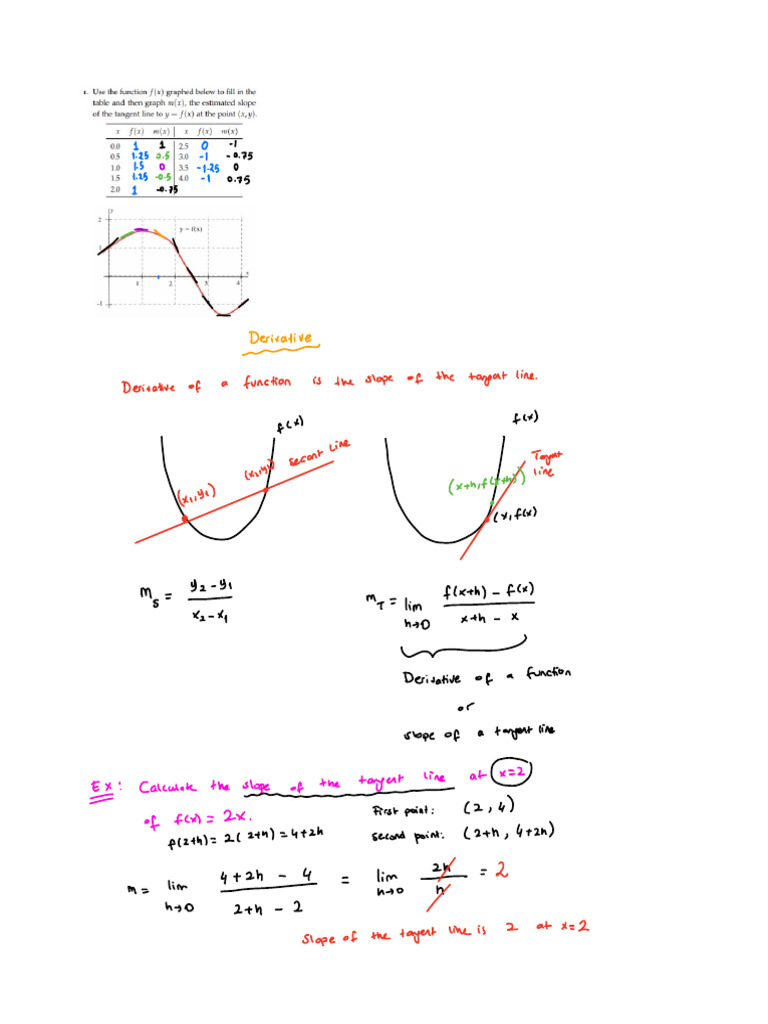 1. Use the function f(x) graphed below to fill in the
table and then graph m(x), the estimated slope
of the tangent line to y = f(x) at the point (x, y).
x f(x) m(x) x f(x) m(x)
0.0 1 1 2.5 0 -1
0.5 1.25 0.5 3.0 -1 -0.75
1.0 1.5 0 3.5 -1.25 0
1.5 1.25 -0.5 4.0 -1 0.75
2.0 1 -0.75
y
2
y = f(x)
1
x
1 2 3 4
-1
Derivative
Derivative of a function is the slope of the tangent line.
f(x) f(x)
(x₁,y₁) (x₂,y₂) secant line
Tangent line
(x+h, f(x+h))
(x, f(x)
m_S = (y₂-y₁)/(x₂-x₁)
m_T = lim h→0 (f(x+h) - f(x))/(x+h - x)
Derivative of a function
or
slope of a tangent line
Ex: Calculate the slope of the tangent line at x=2
of f(x) = 2x.
First point: (2, 4)
f(2+h) = 2(2+h) = 4+2h
second point: (2+h, 4+2h)
m = lim h→0 (4+2h - 4)/(2+h - 2) = lim h→0 2h/h = 2
Slope of the tangent line is 2 at x=2